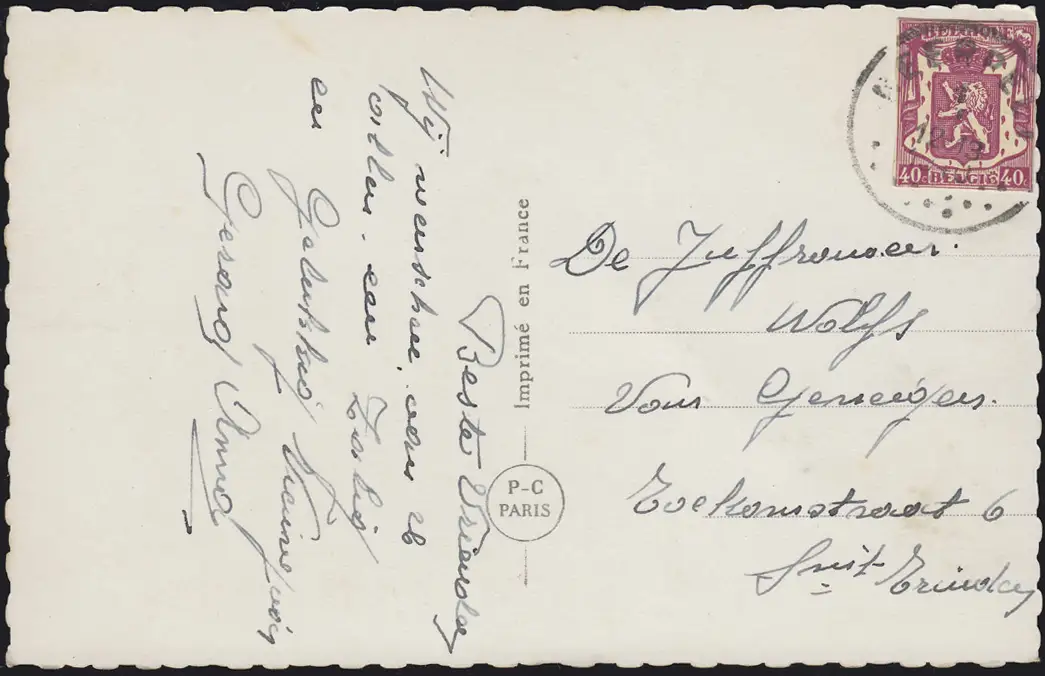 Beste Vrienden
Wij wenschen aan ub
allen een Zalig
en Gelukkig Nieuwjaar
Gerard Anna
Imprimé en France
P-C
PARIS
BELGIQUE
12-13
40c BELGIE 40c
De Juffrouwen
Wolfs
Van Genechten
Toekomstraat 6
Sint Truiden